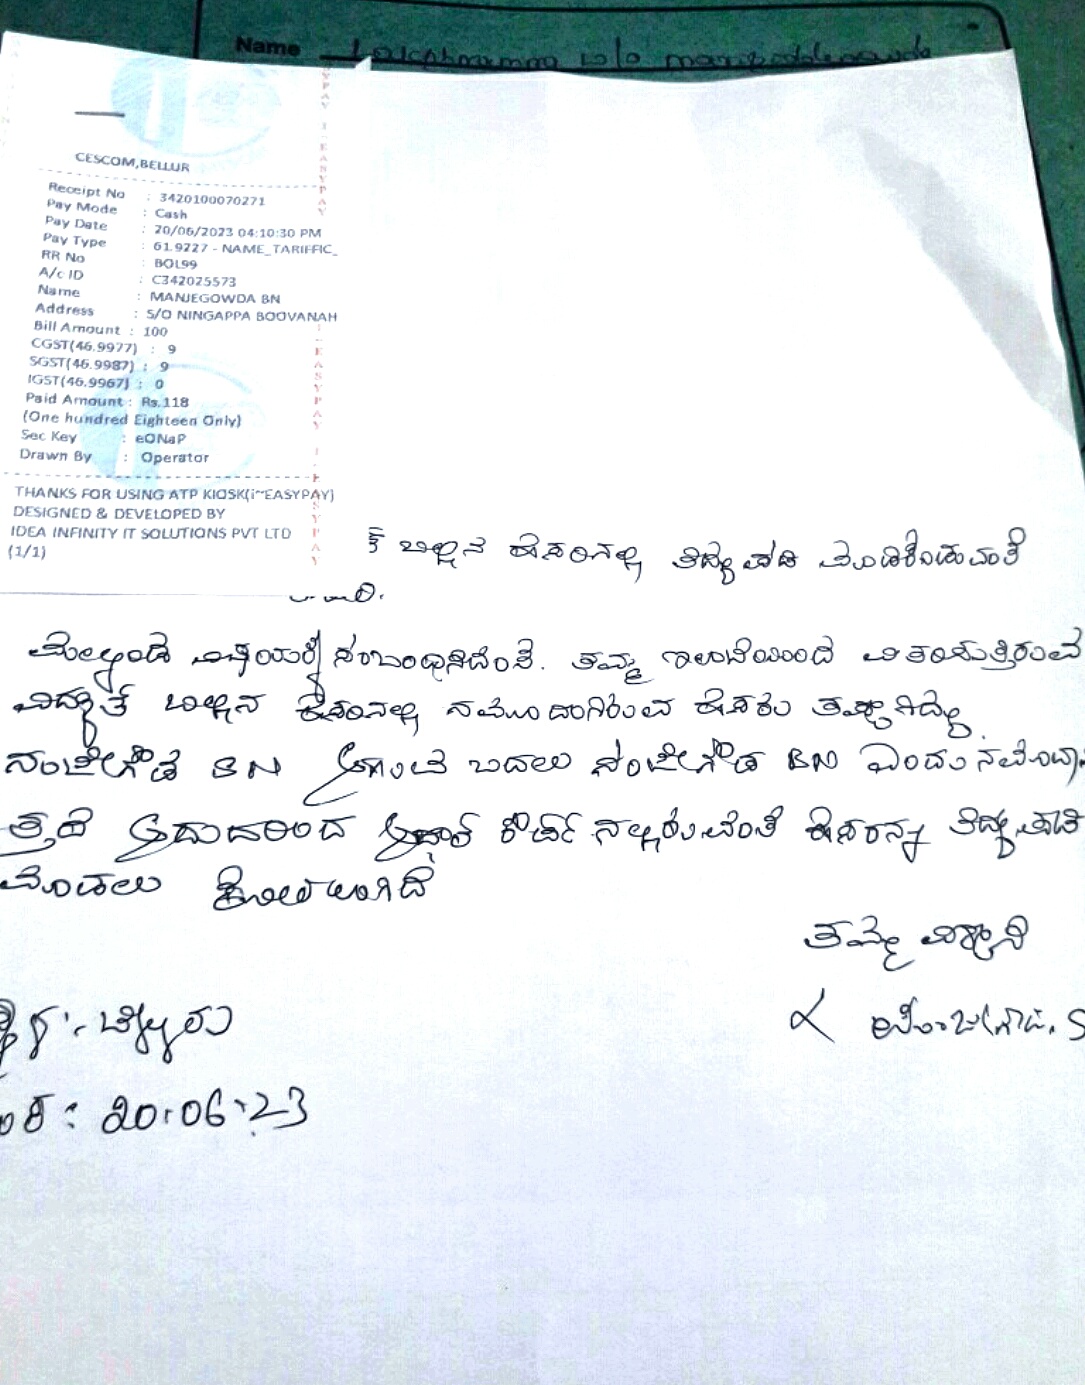 Name
CESCOM,BELLUR
Receipt No : 3420100070271
Pay Mode : Cash
Pay Date : 20/06/2023 04:10:30 PM
Pay Type : 61.9227 - NAME_TARIFFIC_
RR No : BOL99
A/c ID : C342025573
Name : MANJEGOWDA BN
Address : S/O NINGAPPA BOOVANAH
Bill Amount : 100
CGST(46.9977) : 9
SGST(46.9987) : 9
IGST(46.9967) : 0
Paid Amount : Rs.118
(One hundred Eighteen Only)
Sec Key : eONaP
Drawn By : Operator
THANKS FOR USING ATP KIOSK(i~EASYPAY)
DESIGNED & DEVELOPED BY
IDEA INFINITY IT SOLUTIONS PVT LTD
(1/1)
ಬಿಲ್ಲಿನ ಹೆಸರಿನಲ್ಲಿ ತಿದ್ದುಪಡಿ ಮಾಡಿಕೊಡುವಂತೆ
ಮೇಲ್ಕಂಡ ವಿಷಯಕ್ಕೆ ಸಂಬಂಧಿಸಿದಂತೆ. ತಮ್ಮ ಇಲಾಖೆಯಿಂದ ವಿತರಿಸುತ್ತಿರುವ
ವಿದ್ಯುತ್ ಬಿಲ್ಲಿನ ಹೆಸರಿನಲ್ಲಿ ನಮೂದಾಗಿರುವ ಹೆಸರು ತಪ್ಪಾಗಿದ್ದು
ನಂಜೇಗೌಡ BN ಬದಲು ಮಂಜೇಗೌಡ BN ಎಂದು
ಆದುದರಿಂದ ಆಧಾರ್ ಕಾರ್ಡ್ ನಲ್ಲಿರುವಂತೆ ಹೆಸರನ್ನು ತಿದ್ದುಪಡಿ
ಮಾಡಲು ಕೋರಲಾಗಿದೆ
ತಮ್ಮ ವಿಶ್ವಾಸಿ
ಬೆಳ್ಳೂರು
20.06.23